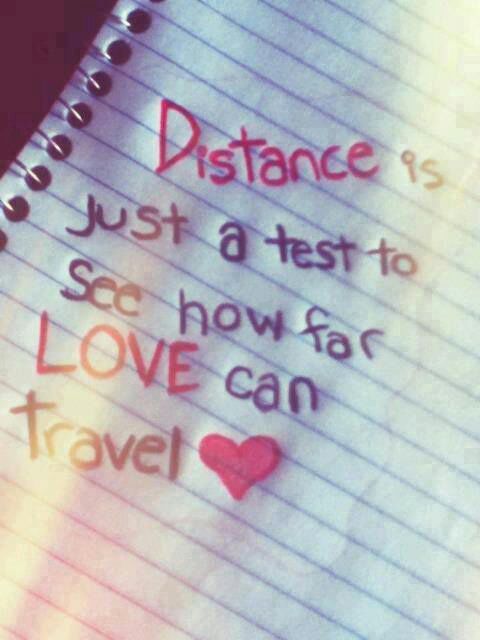 Distance is
just a test to
See how far
LOVE can
travel